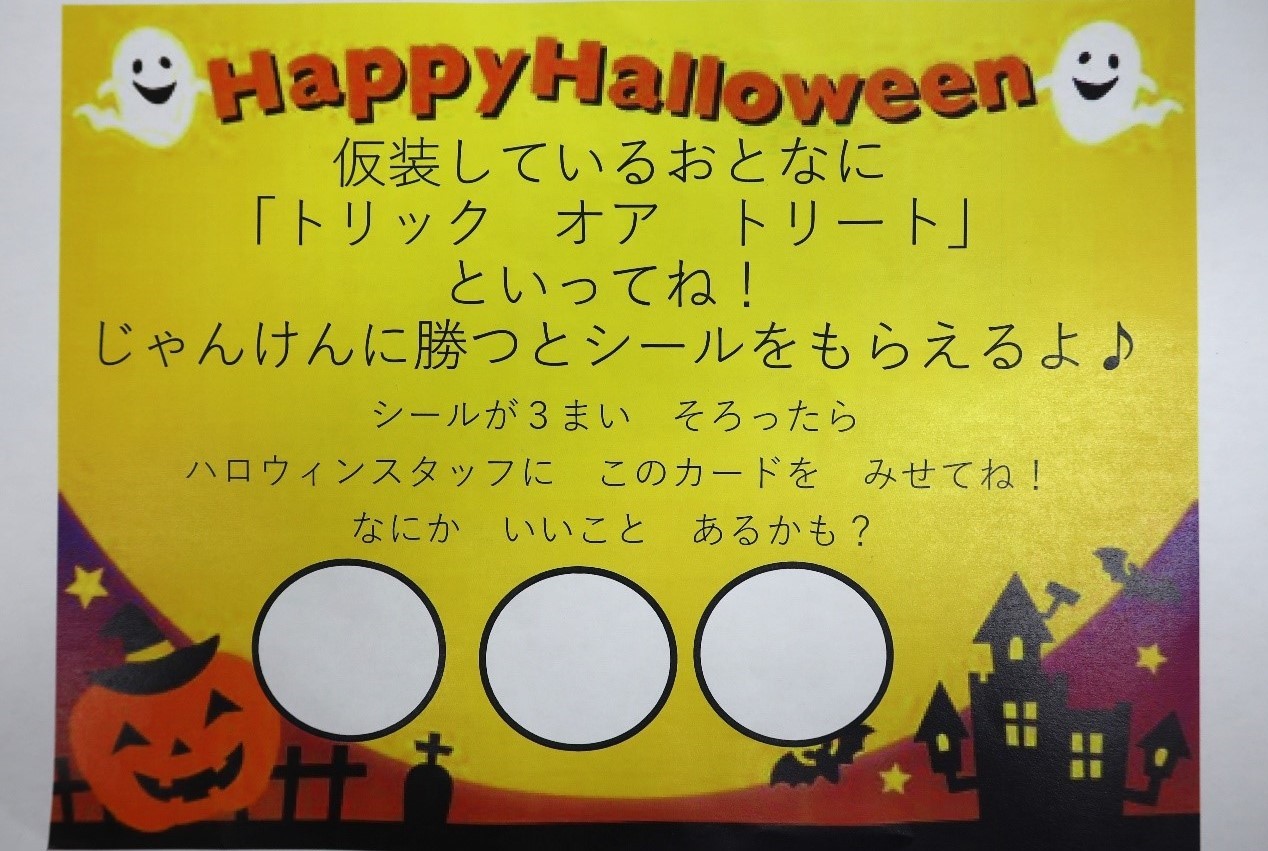 HappyHalloween
仮装しているおとなに
「トリック　オア　トリート」
といってね！
じゃんけんに勝つとシールをもらえるよ♪
シールが３まい　そろったら
ハロウィンスタッフに　このカードを　みせてね！
なにか　いいこと　あるかも？